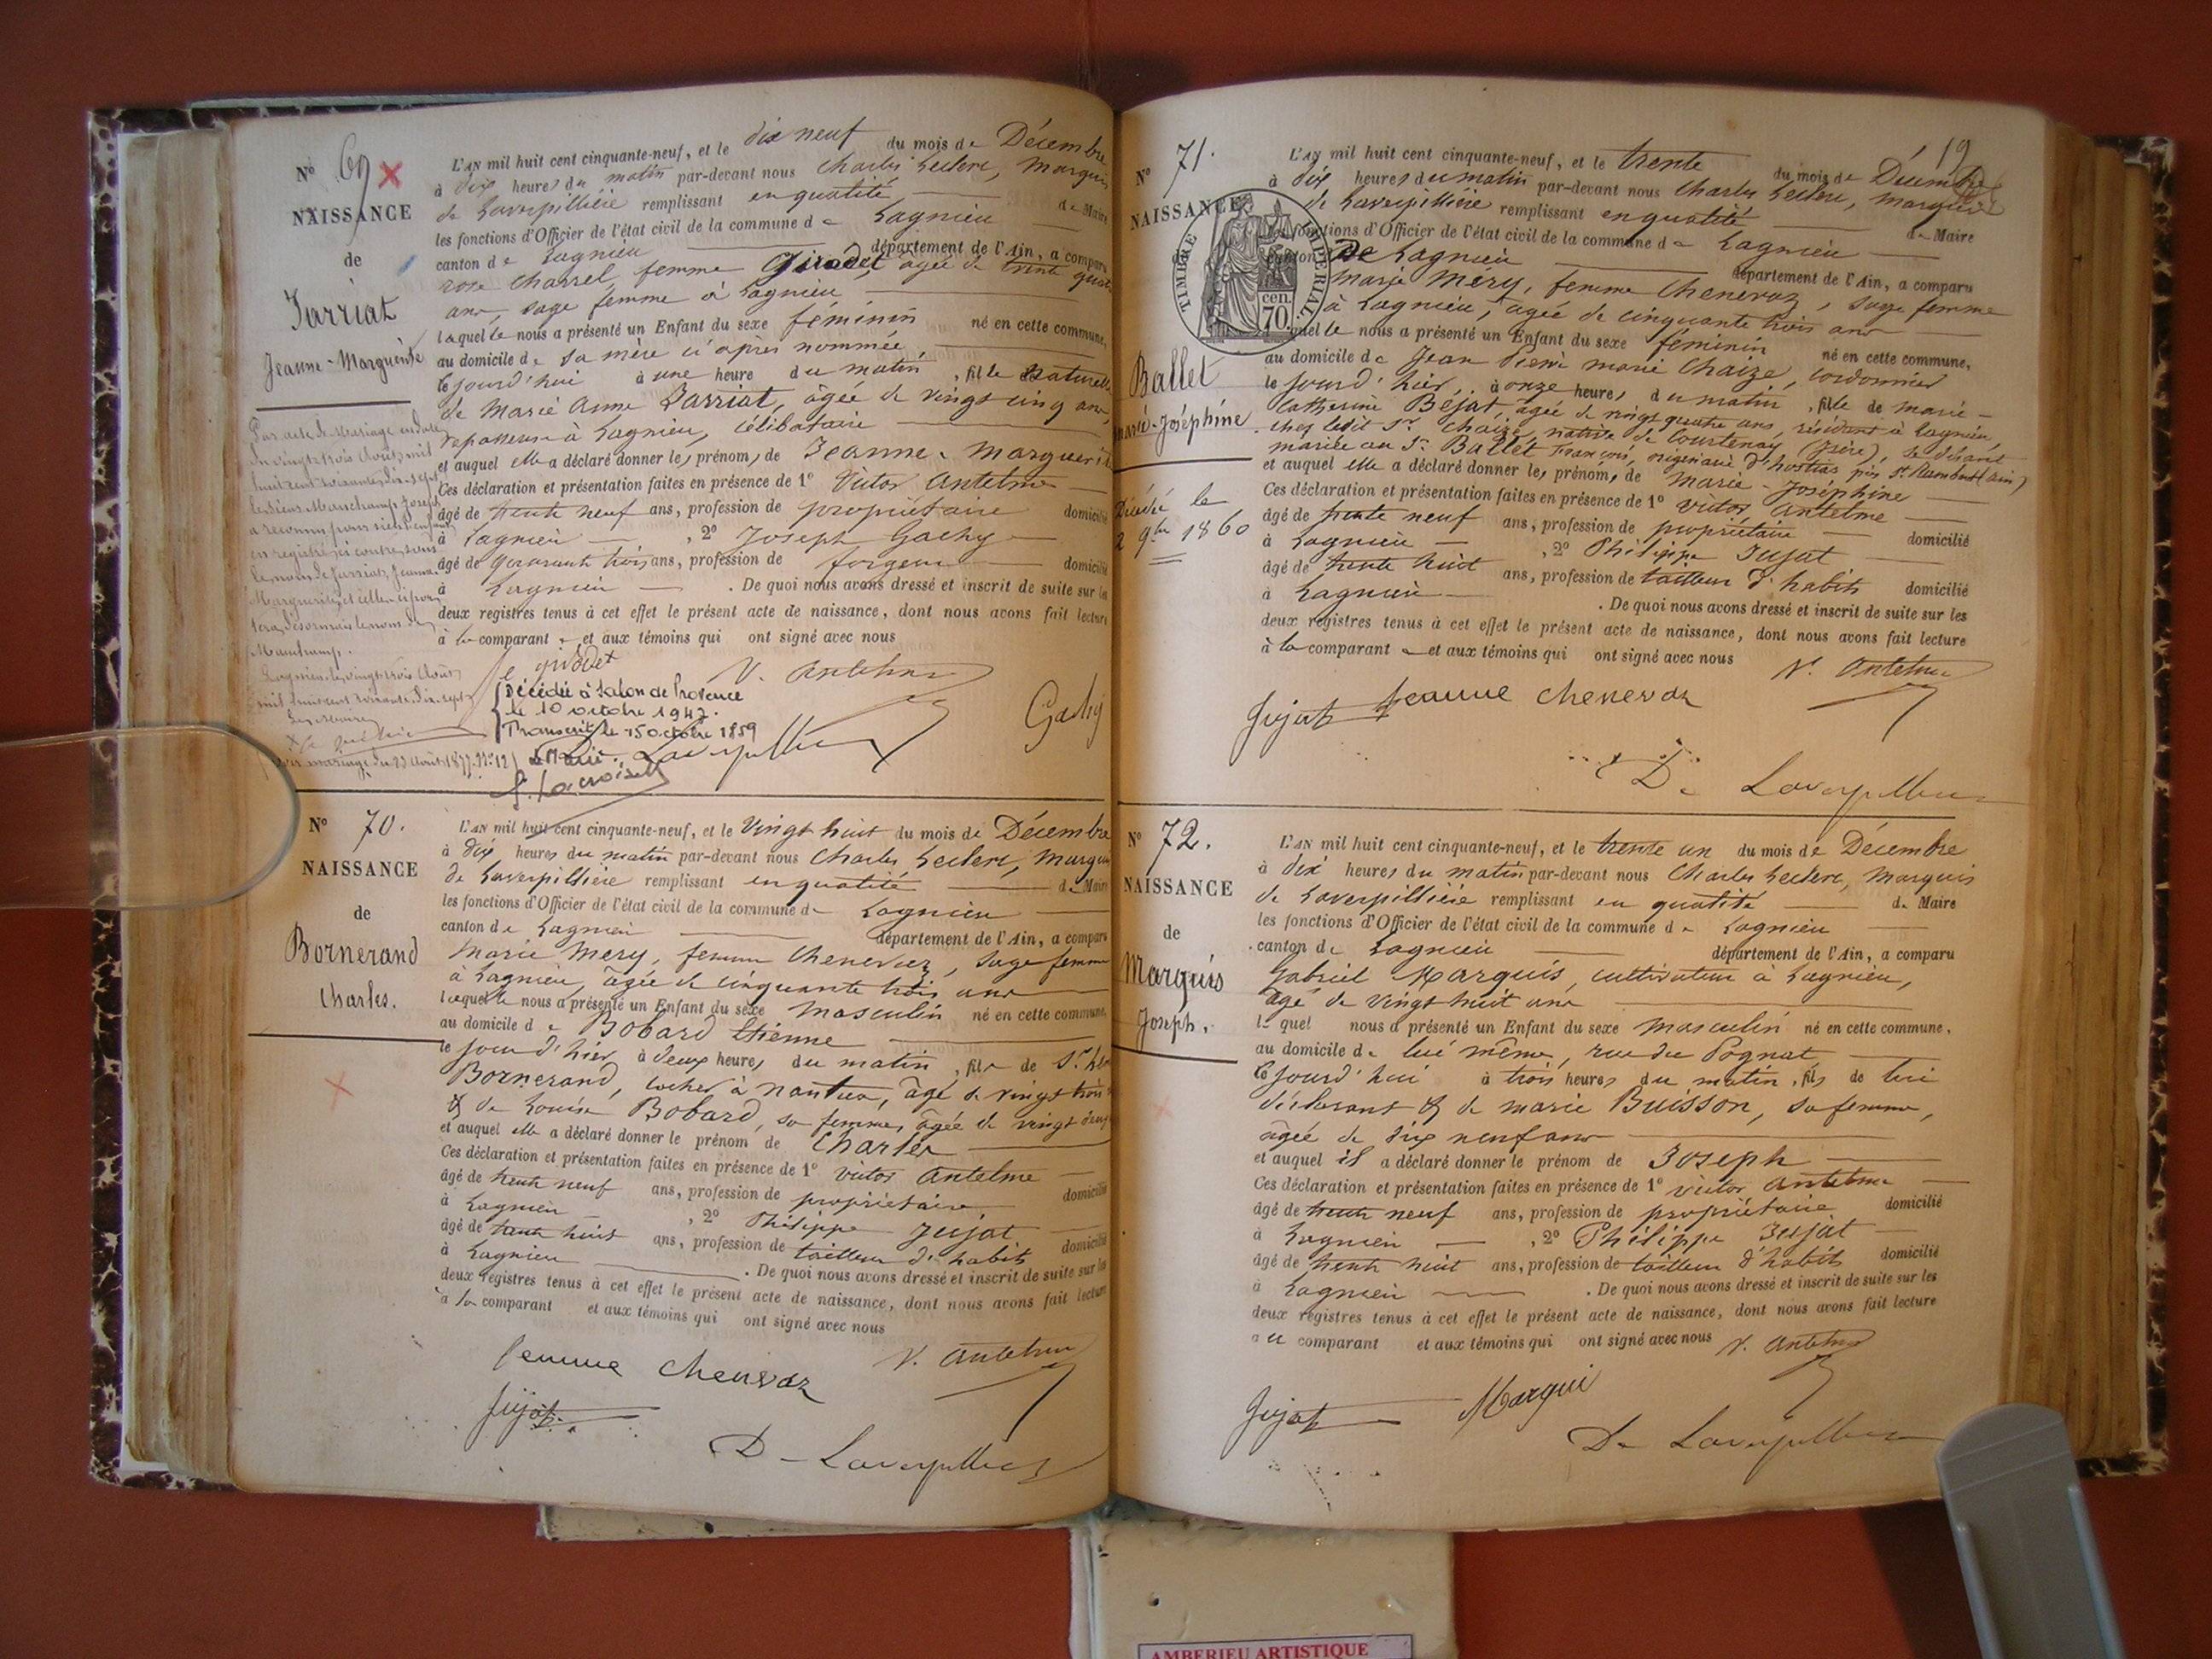 N° 69
NAISSANCE
de
Jarriat
Jeanne-Marguerite
Par acte de mariage en date
du vingt trois Août mil
huit cent soixante dix-sept
le sieur Manchamp Joseph
a reconnu pour sien l'enfant
en registre ci contre sous
le nom de Jarriat, Jeanne
Marguerite et celle-ci
désormais le nom de
Manchamp.
Lagnieu le vingt trois Août
mil huit cent soixante dix-sept
mariage du 23 Août 1877 N° 12
L'AN mil huit cent cinquante-neuf, et le dix neuf du mois de Décembre
à dix heures du matin par-devant nous Charles Leclerc, Marquis
de Laverpillière remplissant en qualité de Maire
les fonctions d'Officier de l'état civil de la commune de Lagnieu
canton de Lagnieu département de l'Ain, a comparu
rose Charrel, femme Girodet agée de trente quatre
ans, sage femme à Lagnieu
laquelle nous a présenté un Enfant du sexe féminin né en cette commune,
au domicile de sa mère ci après nommée
le jourd'hui à une heure du matin, fille naturelle
de Marie Anne Jarriat, âgée de vingt cinq ans,
repasseuse à Lagnieu, célibataire
et auquel elle a déclaré donner les prénoms de Jeanne-Marguerite
Ces déclaration et présentation faites en présence de 1° Victor Antelme
âgé de trente neuf ans, profession de propriétaire domicilié
à Lagnieu, 2° Joseph Gachy
âgé de quarante trois ans, profession de forgeur domicilié
à Lagnieu. De quoi nous avons dressé et inscrit de suite sur les
deux registres tenus à cet effet le présent acte de naissance, dont nous avons fait lecture
à la comparante et aux témoins qui ont signé avec nous
fe girodet V. Antelme
Décédée à Salon de Provence
le 10 octobre 1947.
Transcrit le 15 octobre 1859
Le Maire: De Laverpillière
Gachy
N° 70.
NAISSANCE
de
Bornerand
Charles.
L'AN mil huit cent cinquante-neuf, et le Vingt huit du mois de Décembre
à dix heures du matin par-devant nous Charles Leclerc, Marquis
de Laverpillière remplissant en qualité de Maire
les fonctions d'Officier de l'état civil de la commune de Lagnieu
canton de Lagnieu département de l'Ain, a comparu
Marie Mery, femme Chenevaz, sage femme
à Lagnieu, âgée de cinquante trois ans
laquelle nous a présenté un Enfant du sexe Masculin né en cette commune,
au domicile de Bobard Etienne
le jour d'hier à deux heures du matin, fils de Sr.
Bornerand, cocher à nantua, âgé de vingt trois
& de Louise Bobard, sa femme, âgée de vingt deux
et auquel elle a déclaré donner le prénom de Charles
Ces déclaration et présentation faites en présence de 1° victor Antelme
âgé de trente neuf ans, profession de propriétaire domicilié
à Lagnieu, 2° Philippe Jujat
âgé de trente huit ans, profession de tailleur d'habits domicilié
à Lagnieu. De quoi nous avons dressé et inscrit de suite sur les
deux registres tenus à cet effet le présent acte de naissance, dont nous avons fait lecture
à la comparant et aux témoins qui ont signé avec nous
femme Chenevaz V. Antelme
Jujat
De Laverpillière
19
N° 71.
NAISSANCE
TIMBRE IMPERIAL
70 cen.
Ballet
marie-Joséphine
Décédée le
2 9bre 1860
L'AN mil huit cent cinquante-neuf, et le trente du mois de Décembre
à dix heures du matin par-devant nous Charles Leclerc, marquis
de Laverpillière remplissant en qualité de Maire
les fonctions d'Officier de l'état civil de la commune de Lagnieu
canton De Lagnieu département de l'Ain, a comparu
Marie Méry, femme Chenevaz, sage femme
à Lagnieu, agée de cinquante trois ans
laquelle nous a présenté un Enfant du sexe féminin né en cette commune,
au domicile de Jean Pierre marie Chaize, cordonnier
le jourd'hier, à onze heures, du matin, fille de marie-
Catherine Béjat, âgée de vingt quatre ans, résidant à Lagnieu,
chez ledit Sr. Chaize, native de Courtenay (Isère), se disant
mariée au Sr. Ballet François, originaire d'hostias près St. Rambert (ain)
et auquel elle a déclaré donner les prénoms de marie-Joséphine
Ces déclaration et présentation faites en présence de 1° victor Antelme
âgé de trente neuf ans, profession de propriétaire domicilié
à Lagnieu, 2° Philippe Jujat
âgé de trente huit ans, profession de tailleur d'habits domicilié
à Lagnieu. De quoi nous avons dressé et inscrit de suite sur les
deux registres tenus à cet effet le présent acte de naissance, dont nous avons fait lecture
à la comparante et aux témoins qui ont signé avec nous
V. Antelme
Jujat femme Chenevaz
De Laverpillière
N° 72.
NAISSANCE
de
Marquis
Joseph.
L'AN mil huit cent cinquante-neuf, et le trente un du mois de Décembre
à dix heures du matin par-devant nous Charles Leclerc, Marquis
de Laverpillière remplissant en qualité de Maire
les fonctions d'Officier de l'état civil de la commune de Lagnieu
canton de Lagnieu département de l'Ain, a comparu
Gabriel Marquis, cultivateur à Lagnieu,
âgé de Vingt huit ans
lequel nous a présenté un Enfant du sexe masculin né en cette commune,
au domicile de lui même, rue du Pognat
le jourd'hui à trois heures du matin, fils de lui
déclarant & de marie Buisson, sa femme,
âgée de dix neuf ans
et auquel il a déclaré donner le prénom de Joseph
Ces déclaration et présentation faites en présence de 1° victor Antelme
âgé de trente neuf ans, profession de propriétaire domicilié
à Lagnieu, 2° Philippe Jujat
âgé de trente huit ans, profession de tailleur d'habits domicilié
à Lagnieu. De quoi nous avons dressé et inscrit de suite sur les
deux registres tenus à cet effet le présent acte de naissance, dont nous avons fait lecture
au comparant et aux témoins qui ont signé avec nous V. Antelme
Jujat Marqui
De Laverpillière
AMBERIEU ARTISTIQUE